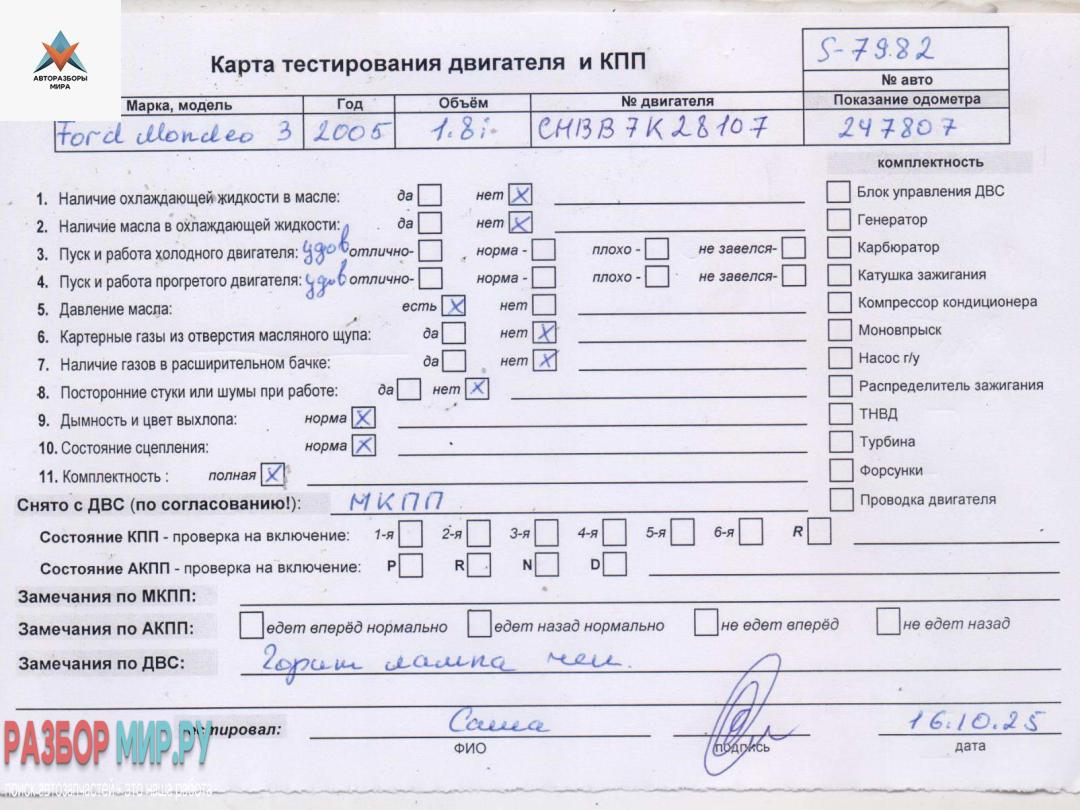 АВТОРАЗБОРЫ
МИРА
Карта тестирования двигателя и КПП
S-7982
№ авто
Марка, модель Год Объём № двигателя Показание одометра
Ford Mondeo 3 2005 1.8i CHBB7K28107 247807
комплектность
1. Наличие охлаждающей жидкости в масле: да нет X Блок управления ДВС
2. Наличие масла в охлаждающей жидкости: да нет X Генератор
3. Пуск и работа холодного двигателя: удов отлично- норма - плохо - не завелся- Карбюратор
4. Пуск и работа прогретого двигателя: удов отлично- норма - плохо - не завелся- Катушка зажигания
5. Давление масла: есть X нет Компрессор кондиционера
6. Картерные газы из отверстия масляного щупа: да нет X Моновпрыск
7. Наличие газов в расширительном бачке: да нет X Насос г/у
8. Посторонние стуки или шумы при работе: да нет X Распределитель зажигания
9. Дымность и цвет выхлопа: норма X ТНВД
10. Состояние сцепления: норма X Турбина
11. Комплектность : полная X Форсунки
Снято с ДВС (по согласованию!): МКПП Проводка двигателя
Состояние КПП - проверка на включение: 1-я 2-я 3-я 4-я 5-я 6-я R
Состояние АКПП - проверка на включение: P R N D
Замечания по МКПП:
Замечания по АКПП: едет вперёд нормально едет назад нормально не едет вперёд не едет назад
Замечания по ДВС: Горит лампа чек.
тестировал: Саша 16.10.25
ФИО подпись дата
РАЗБОР МИР.РУ
поиск автозапчастей - это наша работа